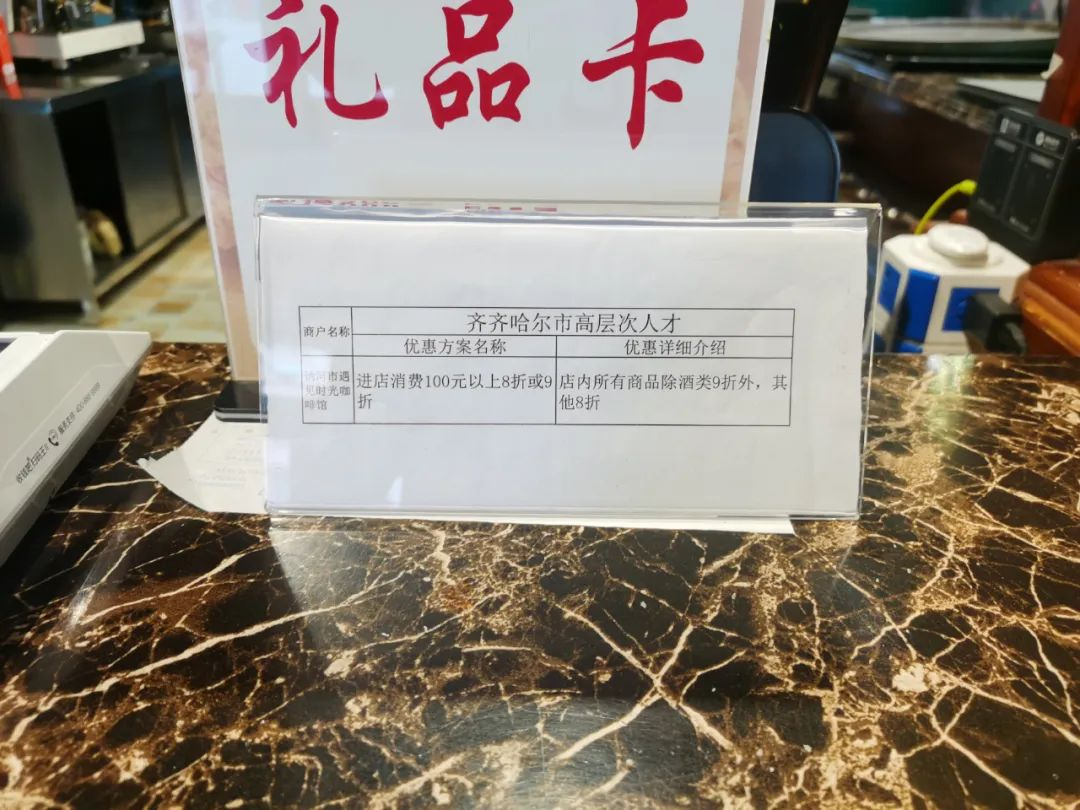 礼品卡
商户名称
齐齐哈尔市高层次人才
优惠方案名称
优惠详细介绍
讷河市遇
见时光咖
啡馆
进店消费100元以上8折或9
折
店内所有商品除酒类9折外，其
他8折
收钱吧扫码王II